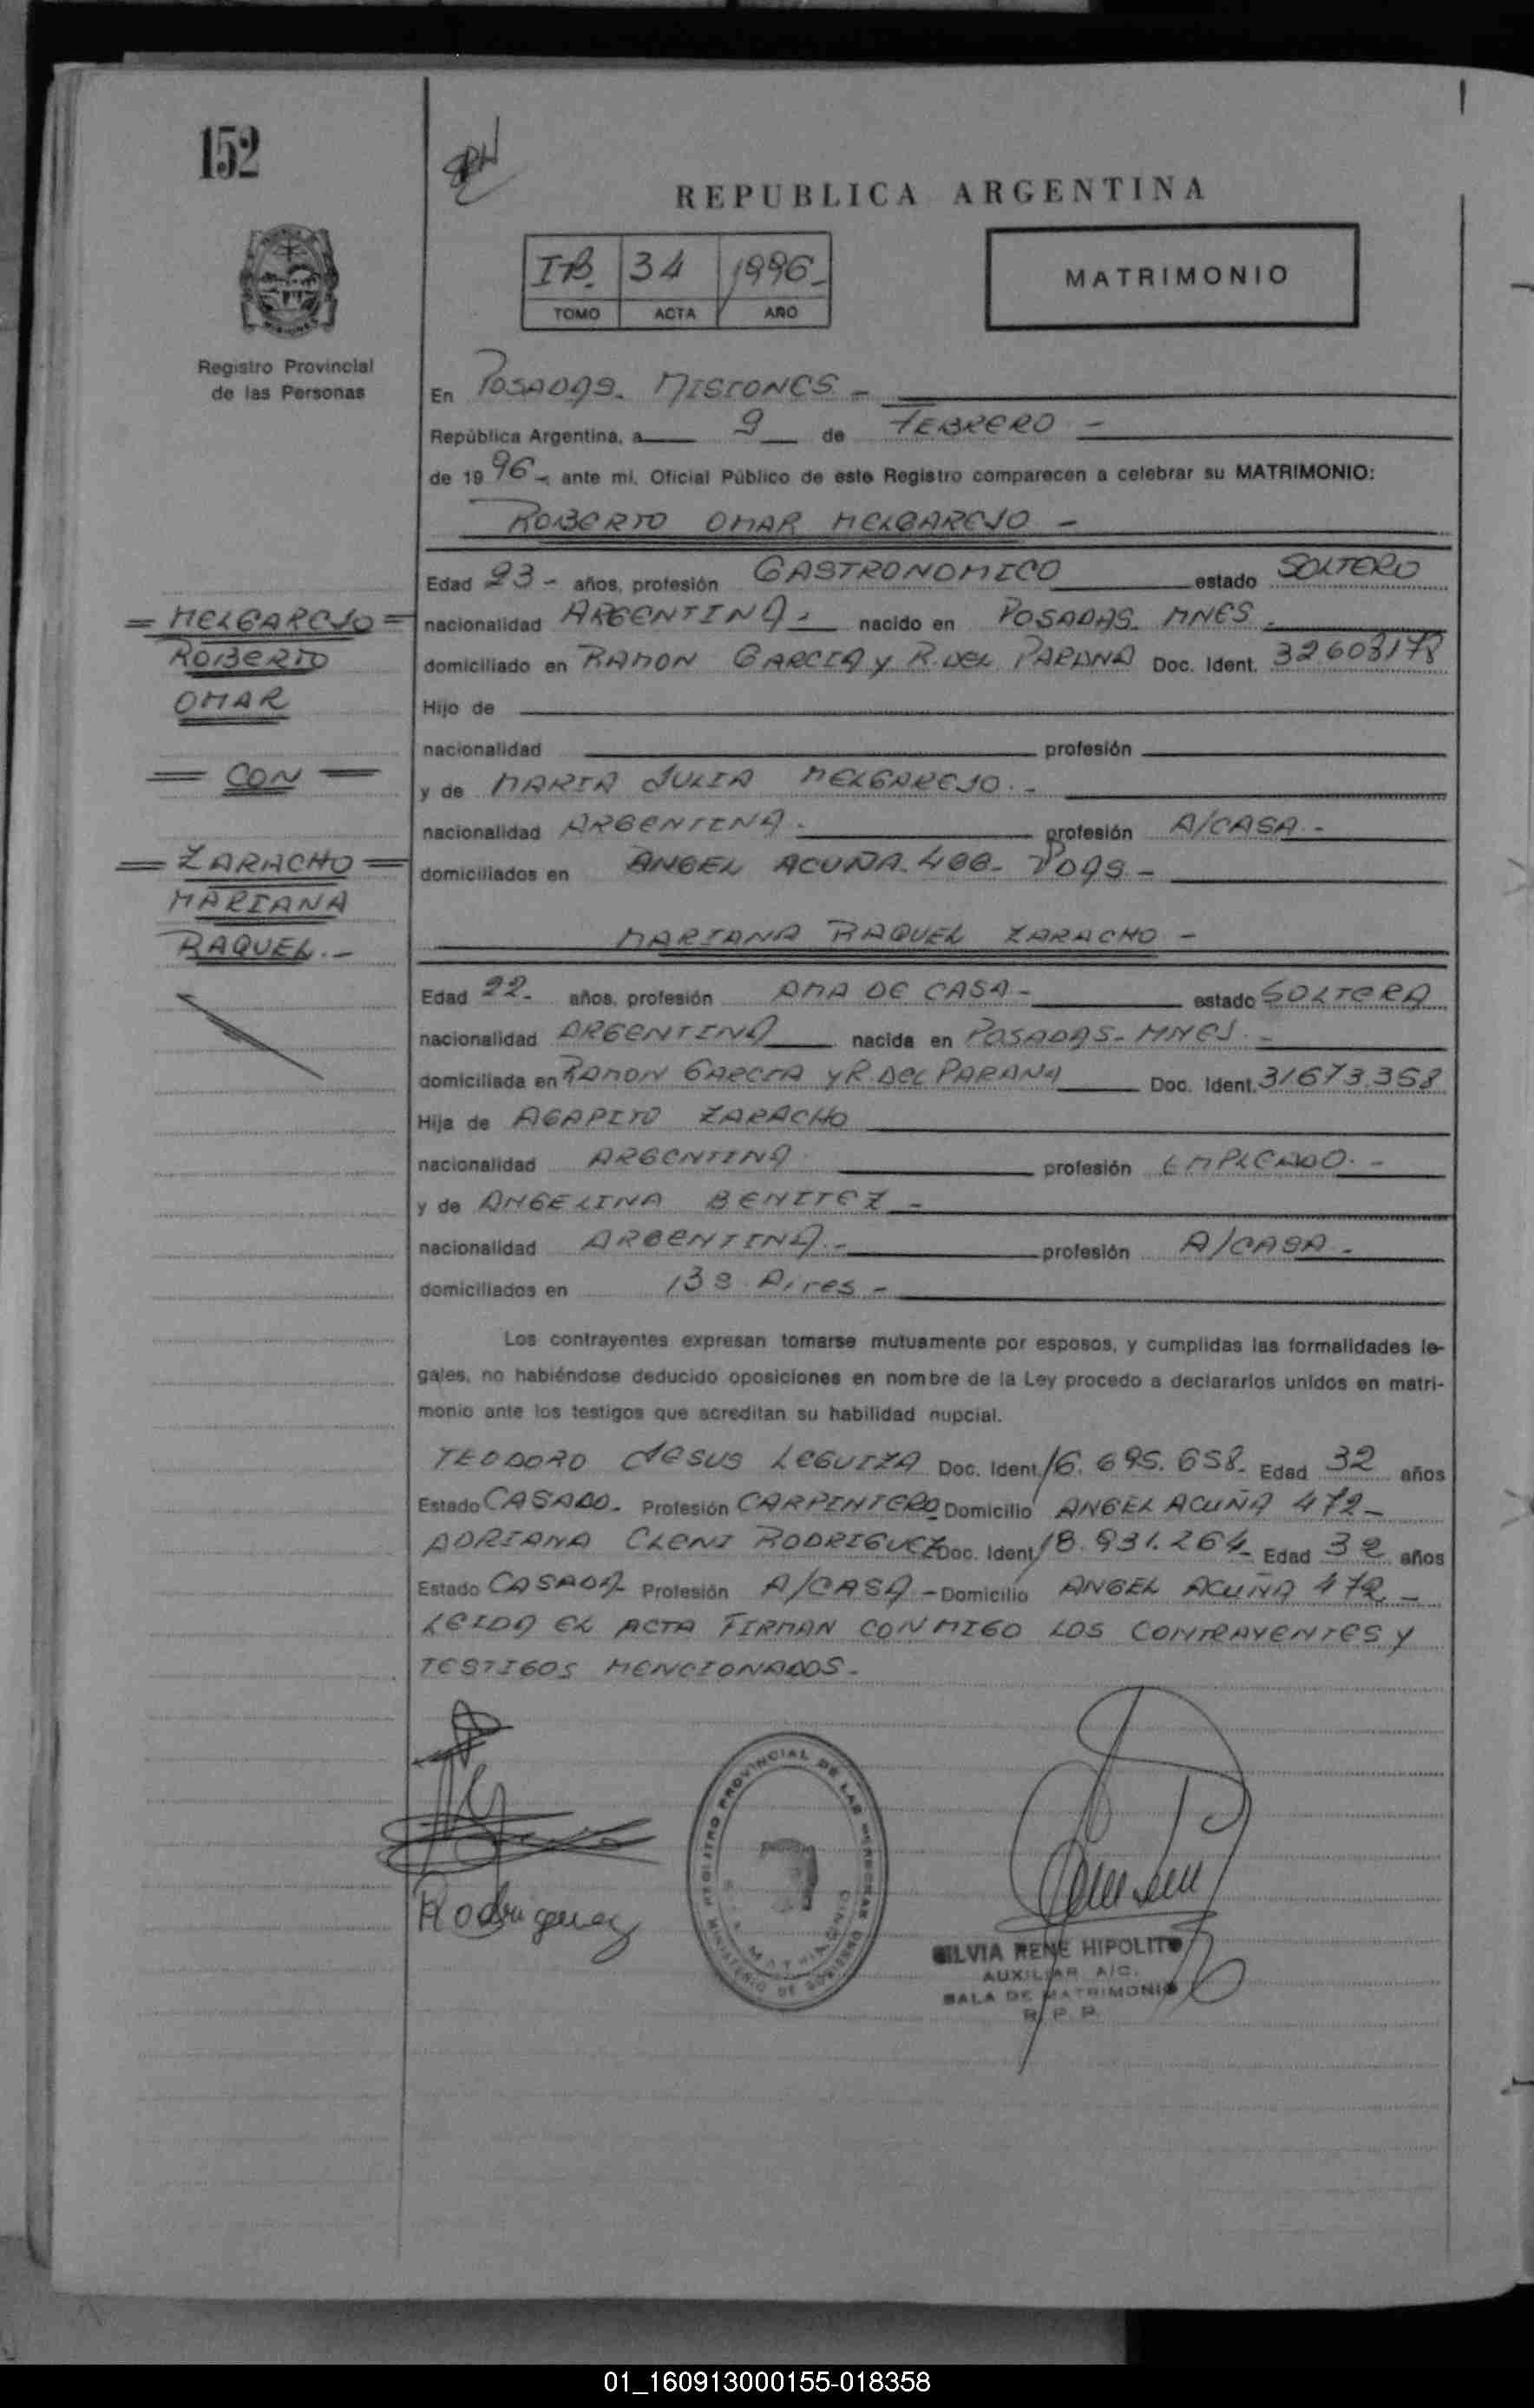 152
REPUBLICA ARGENTINA
IB. 34 1996-
TOMO ACTA AÑO
MATRIMONIO
Registro Provincial
de las Personas
En POSADAS. MISIONES -
República Argentina, a 9 de FEBRERO -
de 1996 - ante mí, Oficial Público de este Registro comparecen a celebrar su MATRIMONIO:
ROBERTO OMAR MELGAREJO -
Edad 23 - años, profesión GASTRONOMICO estado SOLTERO
= MELGAREJO =
ROBERTO
OMAR
= CON =
= ZARACHO =
MARIANA
RAQUEL. -
nacionalidad ARGENTINA. nacido en POSADAS. MNES.
domiciliado en RAMON GARCIA y R. DEL PARANA Doc. Ident. 32.603178
Hijo de
nacionalidad profesión
y de MARIA JULIA MELGAREJO. -
nacionalidad ARGENTINA. profesión A/CASA. -
domiciliados en ANGEL ACUÑA. 400 - PDAS -
MARIANA RAQUEL ZARACHO -
Edad 22. años, profesión AMA DE CASA - estado SOLTERA
nacionalidad ARGENTINA nacida en POSADAS - MNES. -
domiciliada en RAMON GARCIA y R. DEL PARANA Doc. Ident. 31673.358
Hija de AGAPITO ZARACHO
nacionalidad ARGENTINA profesión EMPLEADO. -
y de ANGELINA BENITEZ -
nacionalidad ARGENTINA. - profesión A/CASA -
domiciliados en Bs. Aires -
Los contrayentes expresan tomarse mutuamente por esposos, y cumplidas las formalidades le-
gales, no habiéndose deducido oposiciones en nombre de la Ley procedo a declararlos unidos en matri-
monio ante los testigos que acreditan su habilidad nupcial.
TEODORO JESUS LEGUIZA Doc. Ident. 16.695.658 - Edad 32 años
Estado CASADO - Profesión CARPINTERO Domicilio ANGEL ACUÑA 472 -
ADRIANA CLENI RODRIGUEZ Doc. Ident. 18.931.264 - Edad 32 años
Estado CASADA Profesión A/CASA - Domicilio ANGEL ACUÑA 472 -
LEIDA EL ACTA FIRMAN CONMIGO LOS CONTRAYENTES Y
TESTIGOS MENCIONADOS -
Rodriguez
REGISTRO PROVINCIAL DE LAS PERSONAS
MINISTERIO DE GOBIERNO
MATRIMONIO
SILVIA RENE HIPOLITO
AUXILIAR A/C.
SALA DE MATRIMONIO
R. P. P.
01_160913000155-018358